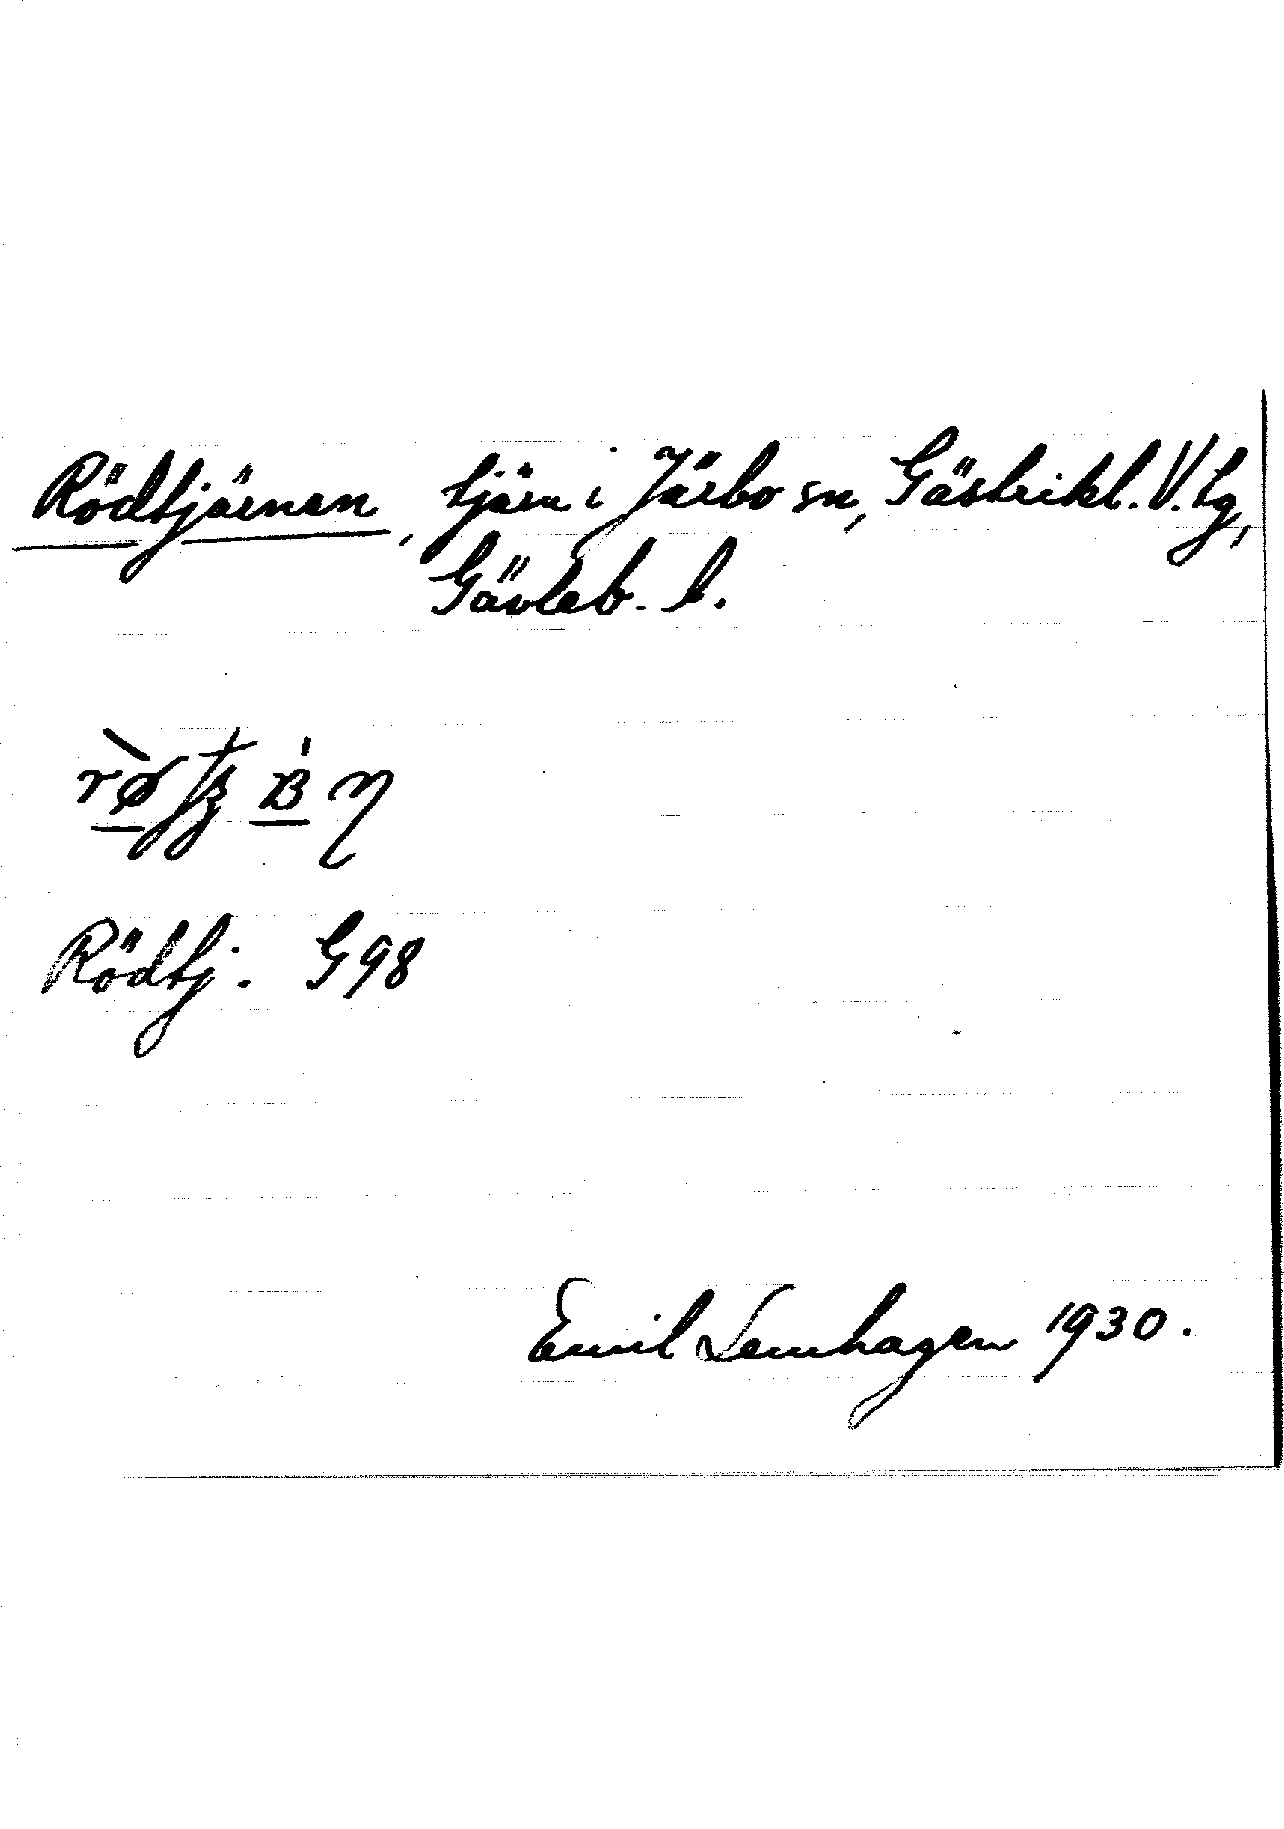 Rödtjärnen, tjärn i Järbo sn, Gästrikl. V. tg,
Gävleb. l.
Rödtj. G98
Emil Lemhagen 1930.